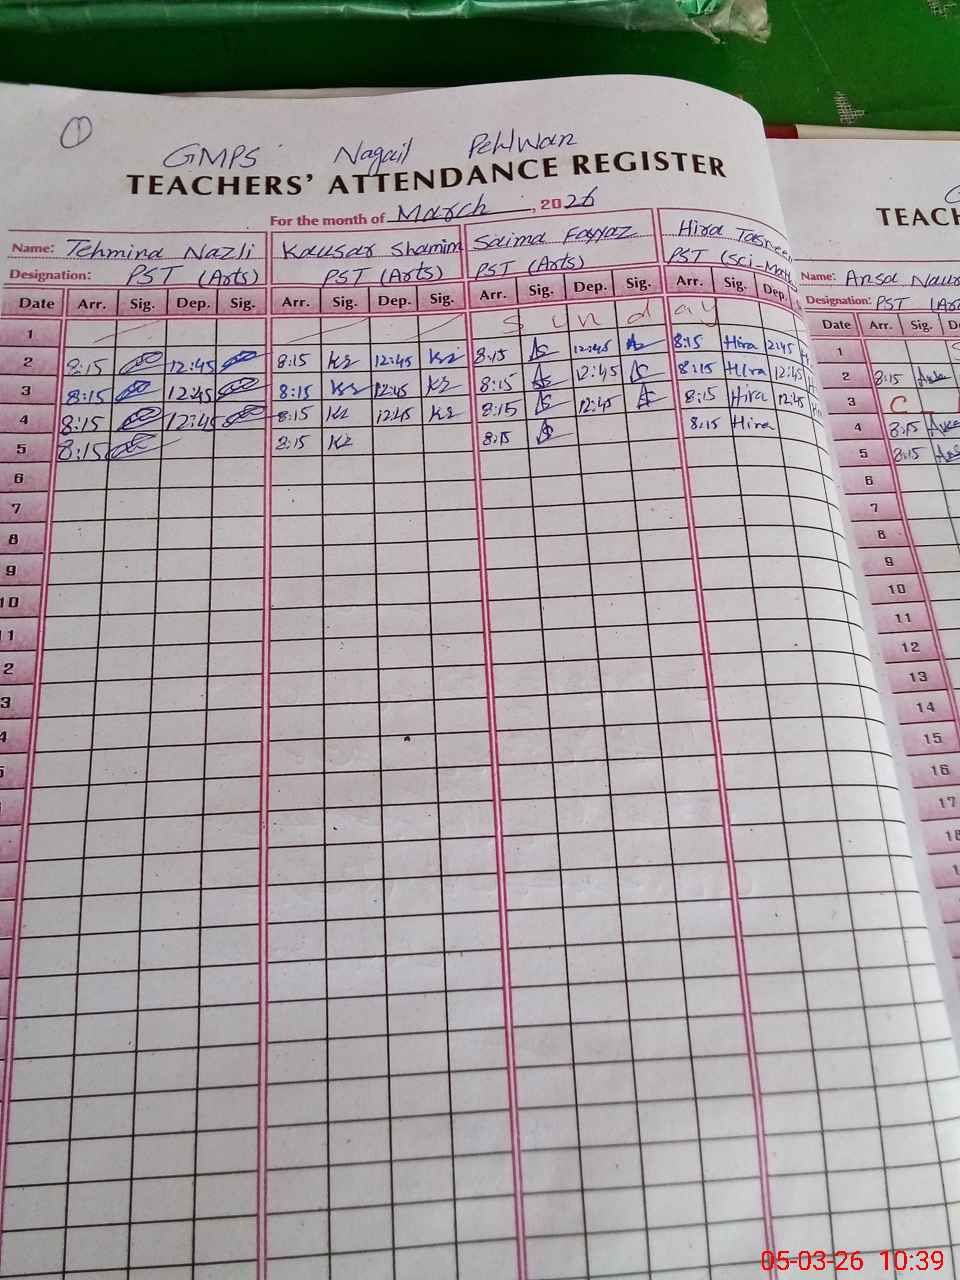 1
GMPS Nagail Pehlwan
TEACHERS' ATTENDANCE REGISTER
For the month of March, 2026
Name: Tehmina Nazli Kausar Shamim Saima Fayyaz Hira
Designation: PST (Arts) PST (Arts) PST (Arts) PST (Sci-Math
Date Arr. Sig. Dep. Sig. Arr. Sig. Dep. Sig. Arr. Sig. Dep. Sig. Arr. Sig. Dep.
1 Sunday
2 8:15 12:45 8:15 Ks 12:45 Ks 8:15 12:45 8:15 Hira 2:45
3 8:15 12:45 8:15 Ks 12:45 Ks 8:15 12:45 8:15 Hira 12:45
4 8:15 12:45 8:15 Ks 12:45 Ks 8:15 12:45 8:15 Hira 12:45
5 8:15 8:15 Ks 8:15 8:15 Hira
6
7
8
9
10
11
2
3
4
TEACH
Name: Ansa
Designation: PST (Ar
Date Arr. Sig. D
1
2 8:15
3 C
4 8:15
5 8:15
6
7
8
9
10
11
12
13
14
15
16
17
18
05-03-26 10:39